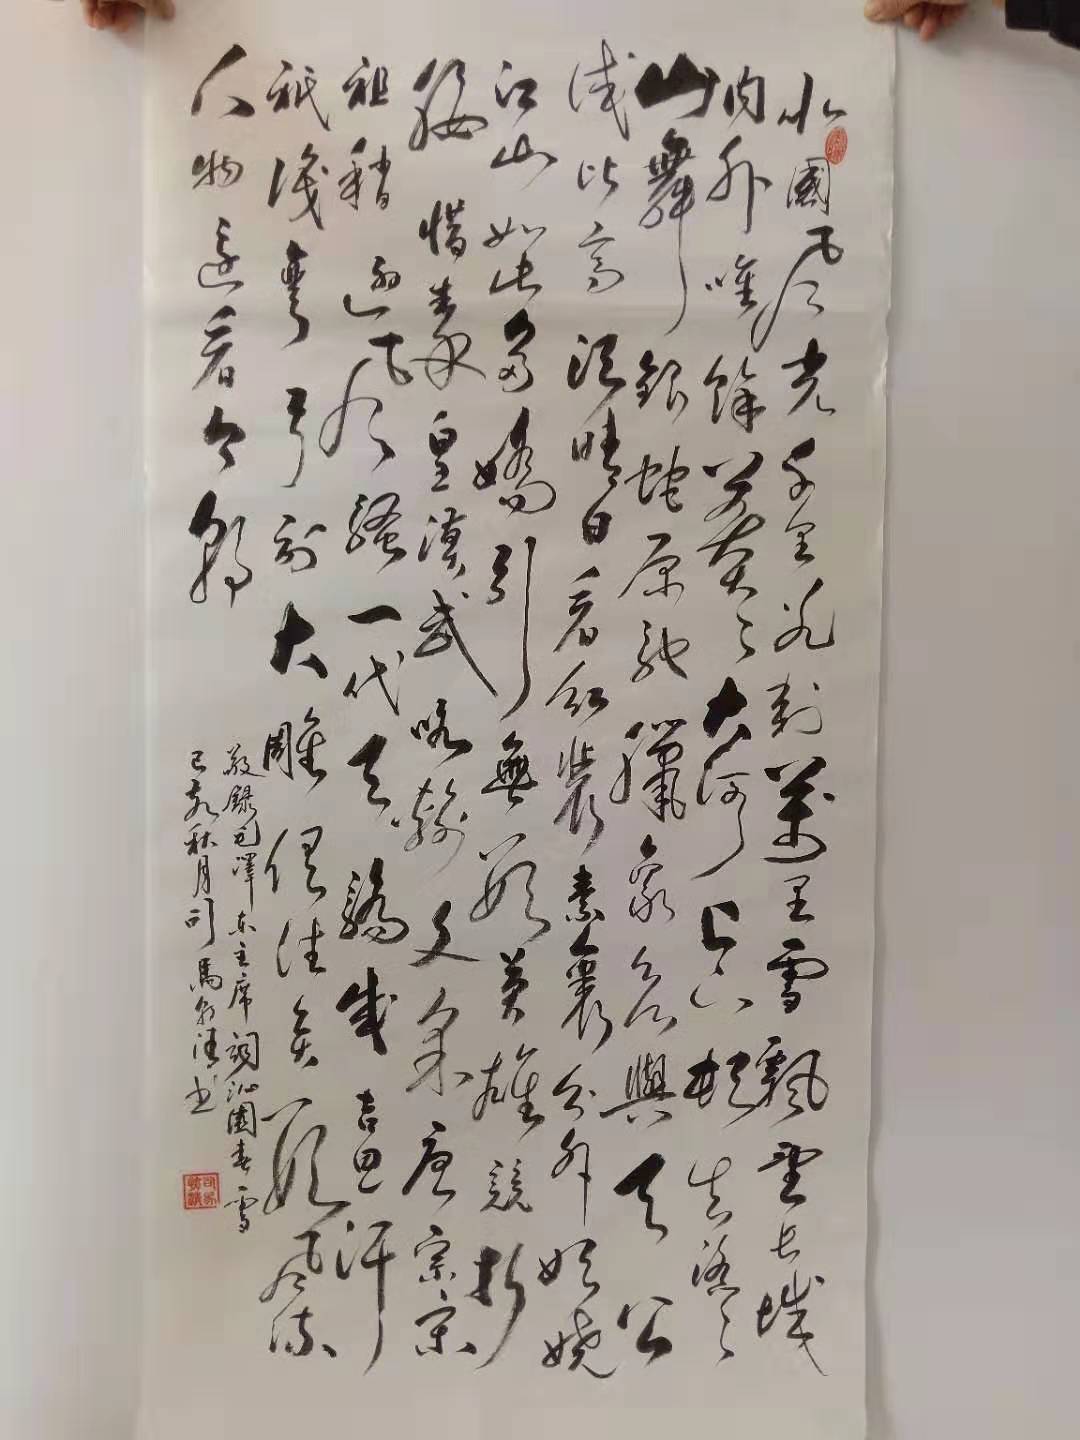 北國風光千里冰封萬里雪飄望長城
內外唯餘莽莽大河上下頓失滔滔
山舞銀蛇原馳臘象欲與天公
試比高須晴日看紅裝素裹分外妖嬈
江山如此多嬌引無數英雄競折
腰惜秦皇漢武略輸文采唐宗宋
祖稍遜風騷一代天驕成吉思汗
祇識彎弓射大雕俱往矣數風流
人物還看今朝
敬錄毛澤東主席詞沁園春雪
己亥秋月司馬清書